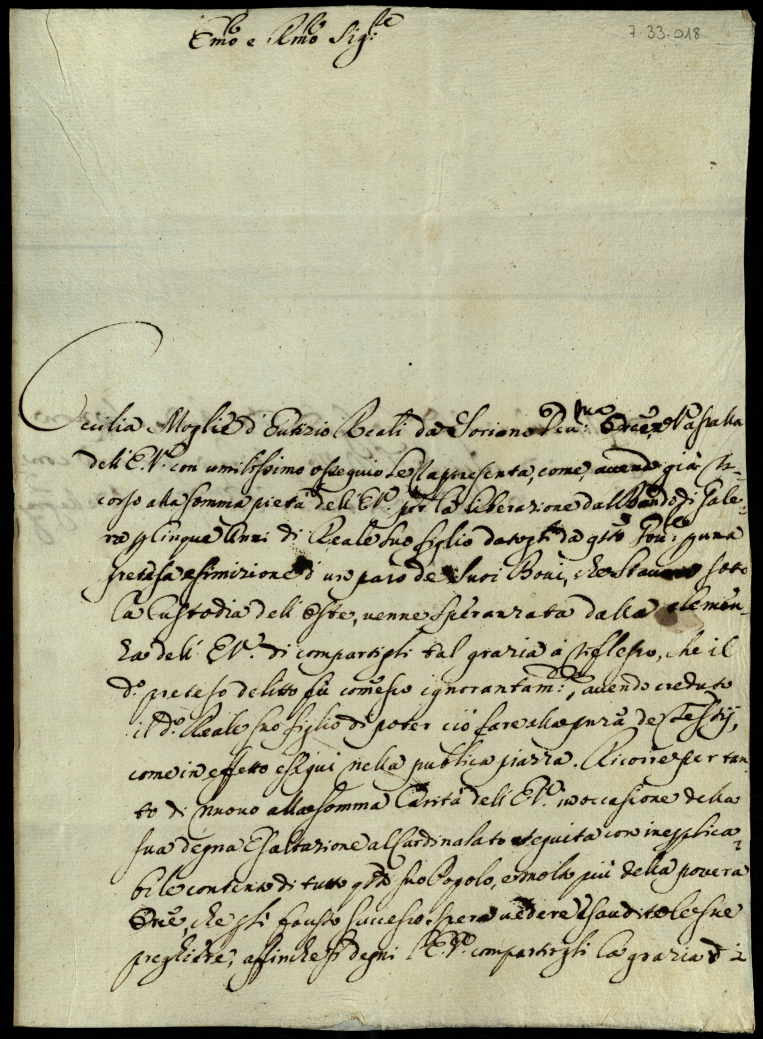 7-33-018
Em̃o e Rm̃o Sig.re
Cecilia Moglie d'Eutizio Reali da Soriano Deu.ma Orẽ, e Vassalla
dell'E.V. con umilissimo ossequio Le rappresenta, come, auendo già ri-
corso alla somma pietà dell'E.V. per la liberazione dal Bando di Gale-
ra p Cinque Anni di Reale suo figlio datogli da q.sto p una
pretesa di un paro de suoi Boui, che stauano sotto
la Custodia dell'Oste, uenne speranzata dalla clemen-
za dell'E.V. di compartirgli tal grazia à riflesso, che il
d.o preteso delitto fù com̃esso ignorantam.te, auendo creduto
il d.o Reale suo figlio di poter ciò fare alla pñza de Testij,
come in effetto eseguì nella publica piazza. Ricorre per tan-
to di nuouo alla somma Carità dell'E.V. in occasione della
sua degna Esaltazione al Cardinalato seguita con inesplica-
bile contento di tutto q.sto suo Popolo, e molto più della pouera
Orẽ, che p sì fausto successo spera uedere esaudite le sue
preghiere, affinche si degni l'E.V. compartirgli la grazia di